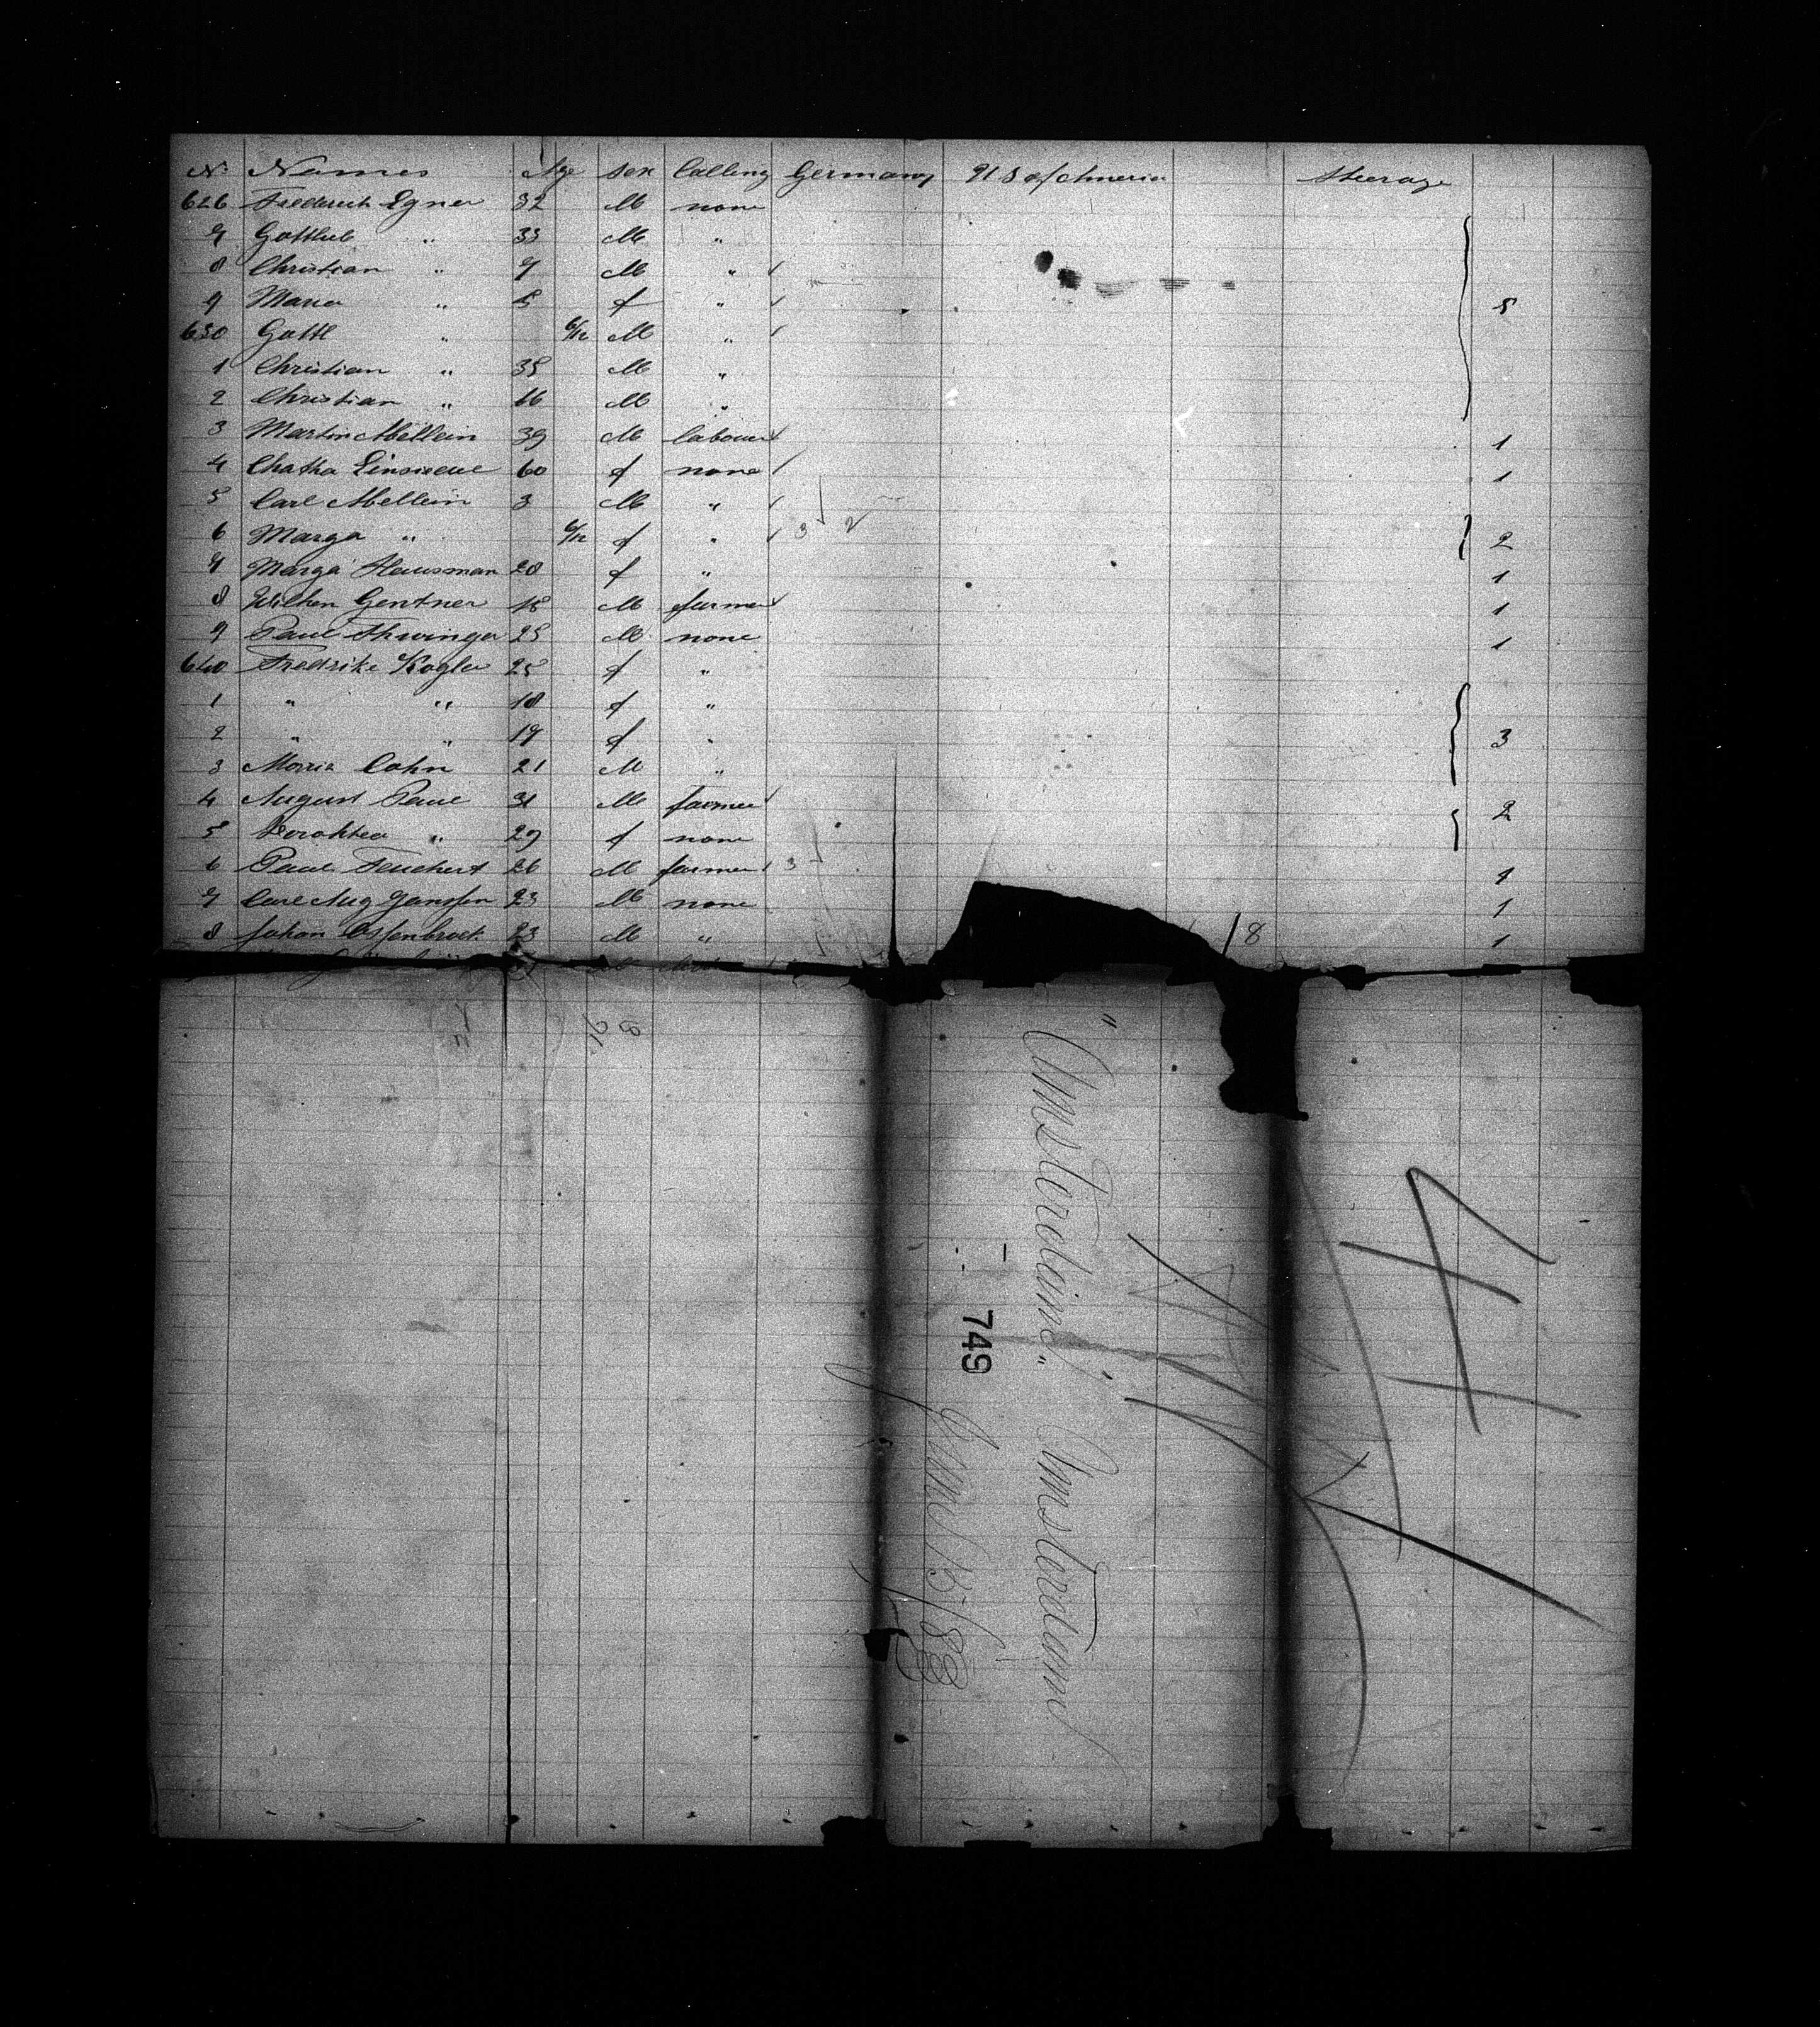 No. Names Age Sex Calling Germany U S of America Steerage
626 Frederich Egner 32 M none
7 Gottlieb " 33 M "
8 Christian " 7 M "
9 Maria " 5 f " 5
630 Gottl " 6/12 M "
1 Christian " 35 M "
2 Christian " 66 M "
3 Martin Mellein 39 M labourer 1
4 60 f none 1
5 Carl Mellein 3 M "
6 Marga " 6/12 f " 3 2 2
7 Marga Hausman 20 f " 1
8 Wilhen Gentner 18 M farmer 1
9 Paul Thuringer 25 M none 1
640 Fredrike Kogler 25 f "
1 " " 18 f "
2 " " 19 f " 3
3 Morris Cohn 21 M "
4 August Paul 31 M farmer 2
5 Dorothea " 29 f none
6 Paul Teichert 26 M farmer 3 1
7 Carl Aug Janssen 23 M none 1
8 Johan 23 M " 1
18
"Amsterdam" Amsterdam
749
June 15/83